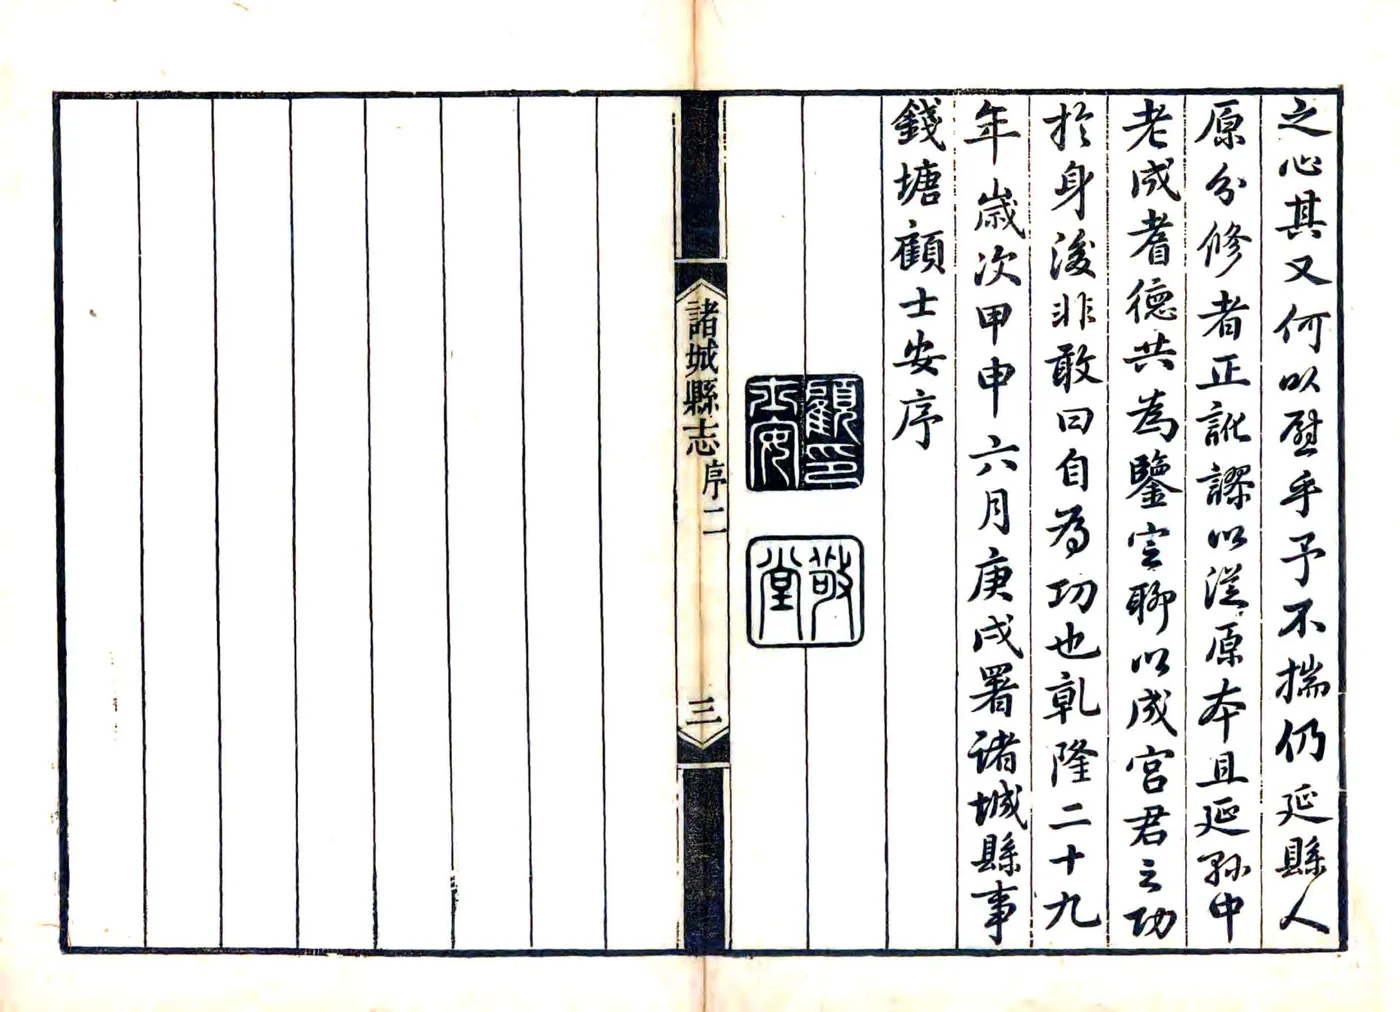 之心其又何以慰乎予不揣仍延縣人
原分修者正訛謬以從原本且延孫中
老成耆德共為鑒定聊以成宮君之功
於身後非敢曰自為功也乾隆二十九
年歲次甲申六月庚戌署諸城縣事
錢塘顧士安序
顧士安印
敬堂
諸城縣志 序二
三